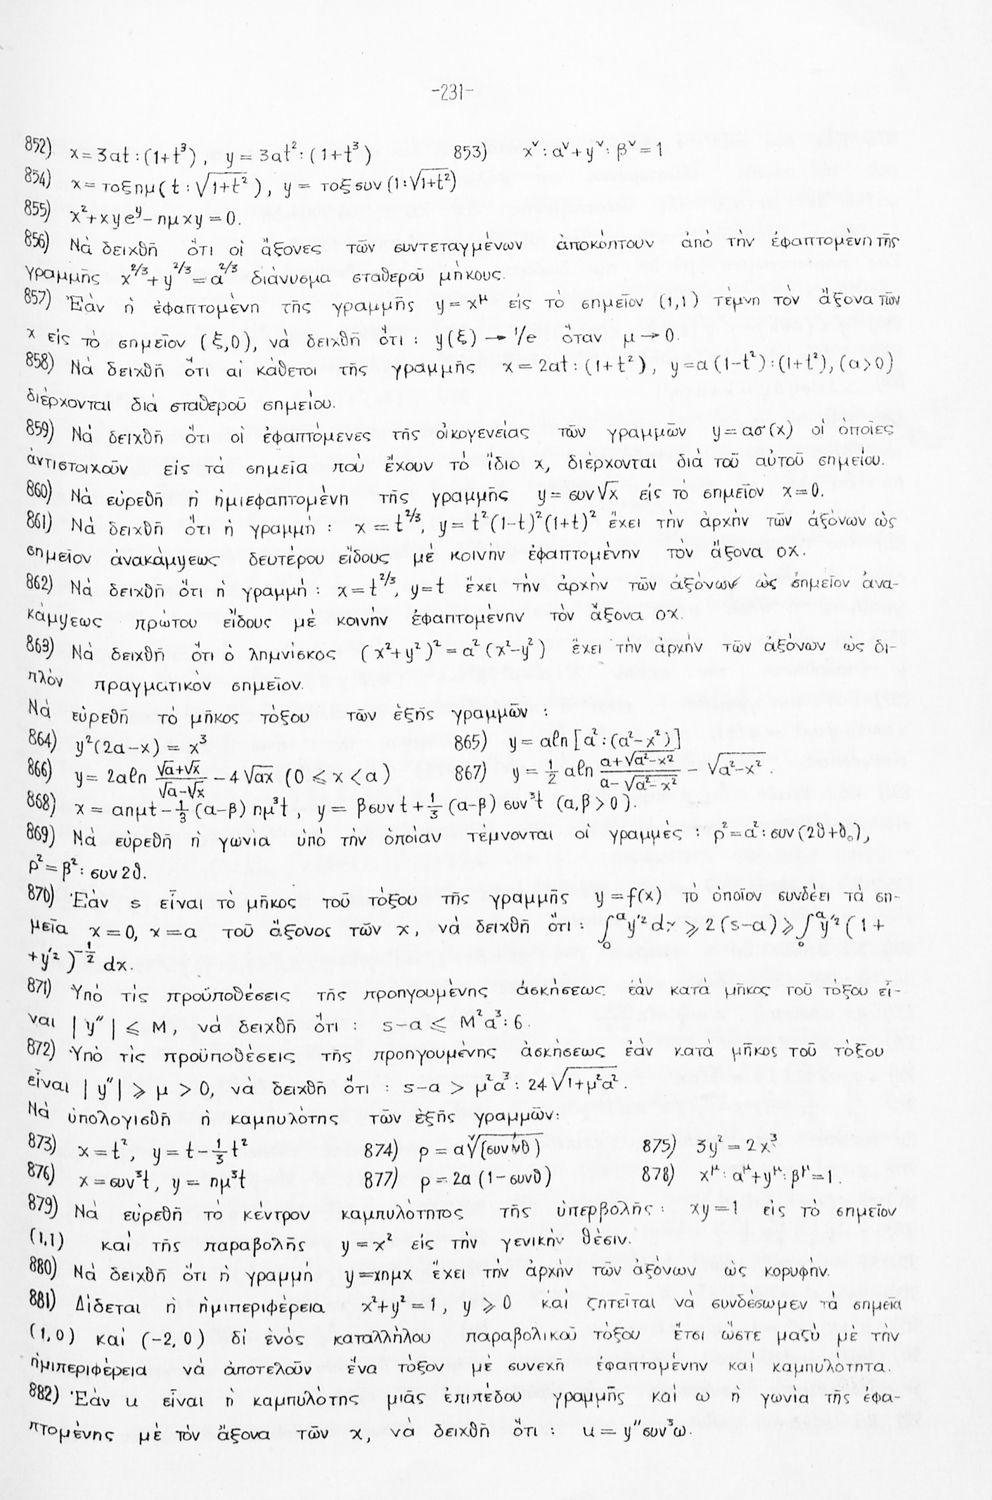 -231-
852) x=3at:(1+t³), y=3at²:(1+t³) 853) xᵛ:αᵛ+yᵛ:βᵛ=1
854) x=τοξημ(t:√1+t²), y= τοξσυν(1:√1+t²)
855) x²+xyeʸ-ημxy=0.
856) Νὰ δειχθῆ ὅτι οἱ ἄξονες τῶν συντεταγμένων ἀποκόπτουν ἀπό τὴν ἐφαπτομένη τῆς
γραμμῆς x²ᐟ³+y²ᐟ³=α²ᐟ³ διάνυσμα σταθεροῦ μήκους.
857) Ἐάν ἡ ἐφαπτομένη τῆς γραμμῆς y=xᵘ εἰς τὸ σημεῖον (1,1) τέμνη τὸν ἄξονα τῶν
x εἰς τὸ σημεῖον (ξ,0), νὰ δειχθῆ ὅτι : y(ξ) → 1/e ὅταν μ→0.
858) Νὰ δειχθῆ ὅτι αἱ κάθετοι τῆς γραμμῆς x=2at:(1+t²), y=a(1-t²):(1+t²),(a>0)
διέρχονται διά σταθεροῦ σημείου.
859) Νὰ δειχθῆ ὅτι οἱ ἐφαπτόμενες τῆς οἰκογενείας τῶν γραμμῶν y=ασ(x) οἱ ὁποῖες
ἀντιστοιχοῦν εἰς τὰ σημεῖα πού ἔχουν τὸ ἴδιο x, διέρχονται διά τοῦ αὐτοῦ σημείου.
860) Νὰ εὑρεθῆ ἡ ἡμιεφαπτομένη τῆς γραμμῆς y=συν√x εἰς τὸ σημεῖον x=0.
861) Νὰ δειχθῆ ὅτι ἡ γραμμή : x=t²ᐟ³, y=t²(1-t)²(1+t)² ἔχει τὴν ἀρχήν τῶν ἀξόνων ὡς
σημεῖον ἀνακάμψεως δευτέρου εἴδους μέ κοινὴν ἐφαπτομένην τὸν ἄξονα οx.
862) Νὰ δειχθῆ ὅτι ἡ γραμμή : x=t²ᐟ³, y=t ἔχει τὴν ἀρχήν τῶν ἀξόνων ὡς σημεῖον ἀνα-
κάμψεως πρώτου εἴδους μέ κοινὴν ἐφαπτομένην τὸν ἄξονα οx.
863) Νὰ δειχθῆ ὅτι ὁ λημνίσκος (x²+y²)²=α²(x²-y²) ἔχει τὴν ἀρχήν τῶν ἀξόνων ὡς δι-
πλὸν πραγματικόν σημεῖον.
Νὰ εὑρεθῆ τὸ μῆκος τόξου τῶν ἑξῆς γραμμῶν :
864) y²(2α-x)=x³ 865) y=αℓn[α²:(α²-x²)]
866) y=2αℓn (√α+√x)/(√α-√x) -4√αx (0⩽x<α) 867) y=½αℓn (α+√α²-x²)/(α-√α²-x²) - √α²-x².
868) x=αημt-⅓(α-β)ημ³t, y=βσυνt+⅓(α-β)συν³t (α,β>0).
869) Νὰ εὑρεθῆ ἡ γωνία ὑπὸ τὴν ὁποίαν τέμνονται οἱ γραμμές : ρ²=α²:συν(2θ+θ₀),
ρ²=β²:συν2θ.
870) Ἐάν s εἶναι τὸ μῆκος τοῦ τόξου τῆς γραμμῆς y=f(x) τὸ ὁποῖον συνδέει τὰ ση-
μεῖα x=0, x=α τοῦ ἄξονος τῶν x, νὰ δειχθῆ ὅτι : ∫₀ᵃy'²dx⩾2(s-α)⩾∫₀ᵃy'²(1+
+y'²)^-½ dx.
871) Ὑπό τίς προϋποθέσεις τῆς προηγουμένης ἀσκήσεως ἐάν κατά μῆκος τοῦ τόξου εἶ-
ναι |y″|⩽M, νὰ δειχθῆ ὅτι : s-α⩽M²α³:6.
872) Ὑπό τίς προϋποθέσεις τῆς προηγουμένης ἀσκήσεως ἐάν κατά μῆκος τοῦ τόξου
εἶναι |y″|⩾μ>0, νὰ δειχθῆ ὅτι : s-α>μ²α³:24√1+μ²α².
Νὰ ὑπολογισθῆ ἡ καμπυλότης τῶν ἑξῆς γραμμῶν:
873) x=t², y=t-⅓t² 874) ρ=α ᵛ√(συννθ) 875) 3y²=2x³
876) x=συν³t, y=ημ³t 877) ρ=2α(1-συνθ) 878) xᵘ:αᵘ+yᵘ:βᵘ=1.
879) Νὰ εὑρεθῆ τὸ κέντρον καμπυλότητος τῆς ὑπερβολῆς: xy=1 εἰς τὸ σημεῖον
(1,1) καί τῆς παραβολῆς y=x² εἰς τὴν γενικήν θέσιν.
880) Νὰ δειχθῆ ὅτι ἡ γραμμή y=xημx ἔχει τὴν ἀρχήν τῶν ἀξόνων ὡς κορυφήν.
881) Δίδεται ἡ ἡμιπεριφέρεια x²+y²=1, y⩾0 καί ζητεῖται νὰ συνδέσωμεν τὰ σημεῖα
(1,0) καί (-2,0) δι ἑνός καταλλήλου παραβολικοῦ τόξου ἔτσι ὥστε μαζύ μέ τὴν
ἡμιπεριφέρεια νὰ ἀποτελοῦν ἕνα τόξον μέ συνεχῆ ἐφαπτομένην καί καμπυλότητα.
882) Ἐάν u εἶναι ἡ καμπυλότης μιᾶς ἐπιπέδου γραμμῆς καί ω ἡ γωνία τῆς ἐφα-
πτομένης μέ τὸν ἄξονα τῶν x, νὰ δειχθῆ ὅτι : u=y″συν³ω.